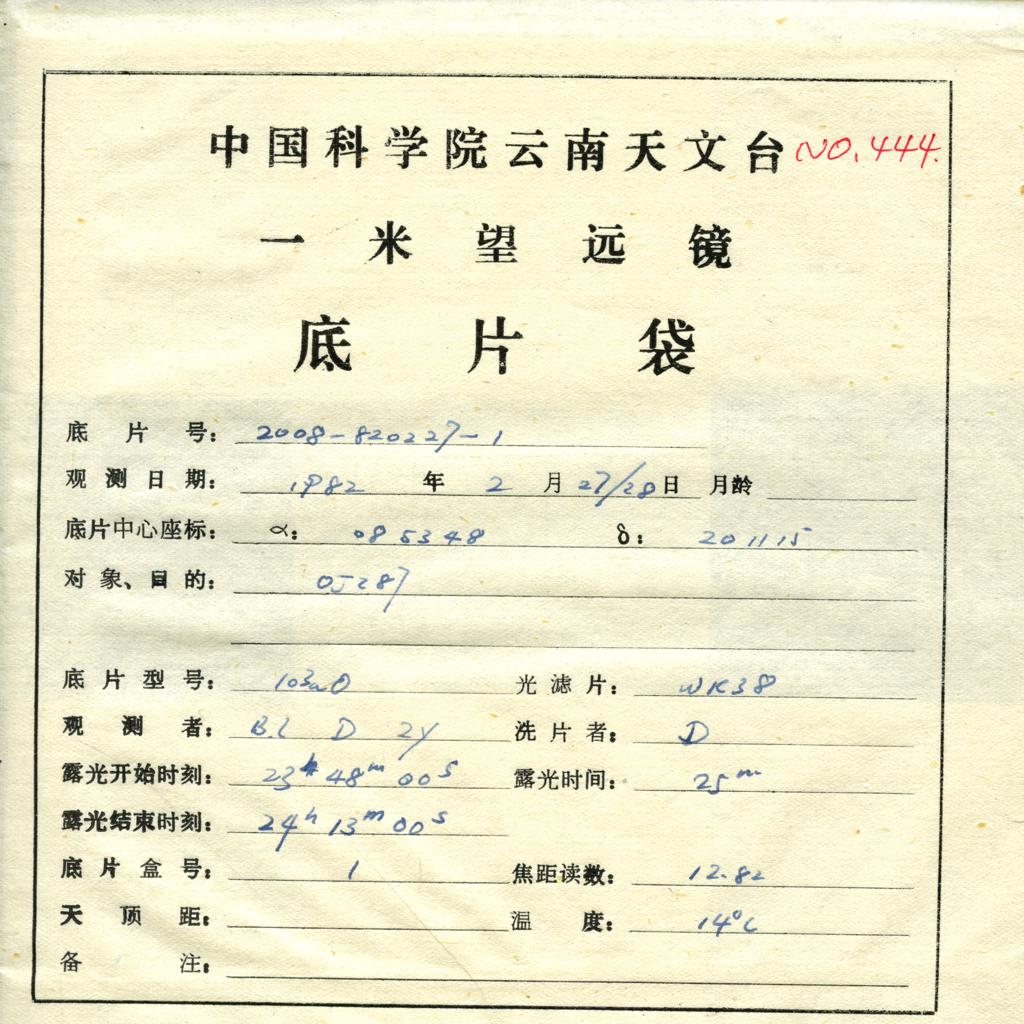 中国科学院云南天文台 NO.444.
一米望远镜
底片袋
底片号: 2008-820227-1
观测日期: 1982 年 2 月 27/28 日 月龄
底片中心座标: α: 08 53 48 δ: 20 11 15
对象、目的: OJ287
底片型号: 103aO 光滤片: WK38
观测者: B.L D ZY 洗片者: D
露光开始时刻: 23h 48m 00s 露光时间: 25m
露光结束时刻: 24h 13m 00s
底片盒号: 1 焦距读数: 12.82
天顶距: 温度: 14°C
备注: